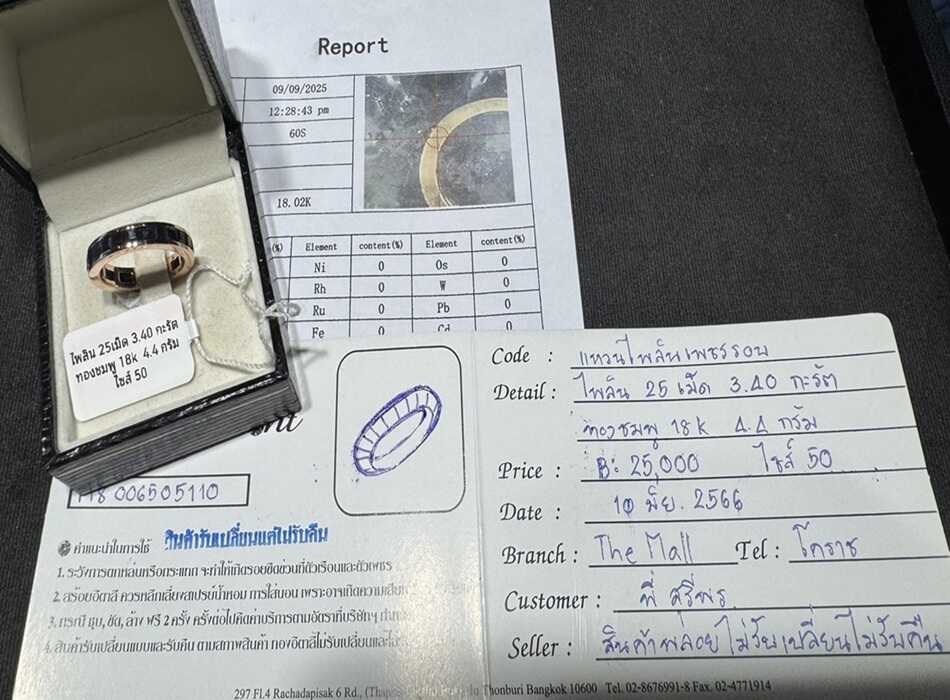 Report
09/09/2025
12:28:43 pm
60S
18.02K
(%) Element content(%) Element content(%)
Ni 0 Os 0
Rh 0 W 0
Ru 0 Pb 0
Fe 0 Cd 0
ไพลิน 25เม็ด 3.40 กะรัต
ทองชมพู 18k 4.4 กรัม
ไซส์ 50
006505110
คำแนะนำในการใช้ สินค้ารับเปลี่ยนแต่ไม่รับคืน
1. ระวังการตกหล่นหรือกระแทก จะทำให้เกิดรอยขีดข่วนที่ตัวเรือนและตัวเพชร
2. สร้อยอิตาลี ควรหลีกเลี่ยงสเปรย์น้ำหอม การใส่นอน เพราะอาจเกิดความเสีย
3. กรณี ชุบ, ขัด, ล้าง ฟรี 2 ครั้ง ครั้งต่อไปคิดค่าบริการตามอัตราที่บริษัทฯ
4. สินค้ารับเปลี่ยนแบบและรับคืน ตามสภาพสินค้า ทองอิตาลีไม่รับเปลี่ยนและ
Code : แหวนไพลินเพชรรอบ
Detail : ไพลิน 25 เม็ด 3.40 กะรัต
ทองชมพู 18k 4.4 กรัม
Price : B: 25,000 ไซส์ 50
Date : 10 มิย. 2566
Branch : The Mall Tel : โคราช
Customer : พี่ ศรีพร
Seller : สินค้าพลอยไม่รับเปลี่ยนไม่รับคืน
297 Fl.4 Rachadapisak 6 Rd., Thonburi Bangkok 10600 Tel. 02-8676991-8 Fax. 02-4771914